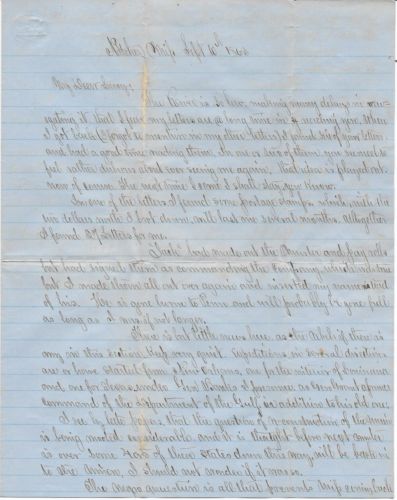 Natchez Miss. Sept 6th 1864
My Dear Emmy;
The River is so low, making many delays in
navigating it that I fear my letters are a long time in reaching you. When
I got back (I forgot to mention in my other letter) I found six of your letters
and had a good time reading them. In one or two of them you seemed to
feel rather dubious about ever seeing me again, that idea is played out
now of course. The next time I come I shall stay, you know.
In one of the letters I found some postage stamps, which with the
six dollars worth I bot down, will last me several months. altogether
I found 27 letters for me.
had made out the Muster and pay rolls
but had signed them as commanding the company,
but I made them all out over again and inserted my name instead
of his. He is gone home to and will probably be gone full
as long as I was if not longer.
There is but little news here as the Rebels if there is
any in this section keep very quiet. Expeditions in several directions
are or have started from New Orleans, one for the interior of Louisiana
and one for Texas, under Gen
command of the department of the Gulf in addition to his old one.
I see by late papers that the question of reconstruction of the Union
is being mooted considerable and it is thought before next winter
is over some of these states down this way will be back in
to the Union, I should not wonder if it was so.
The Negro question is all that prevents Miss coming back